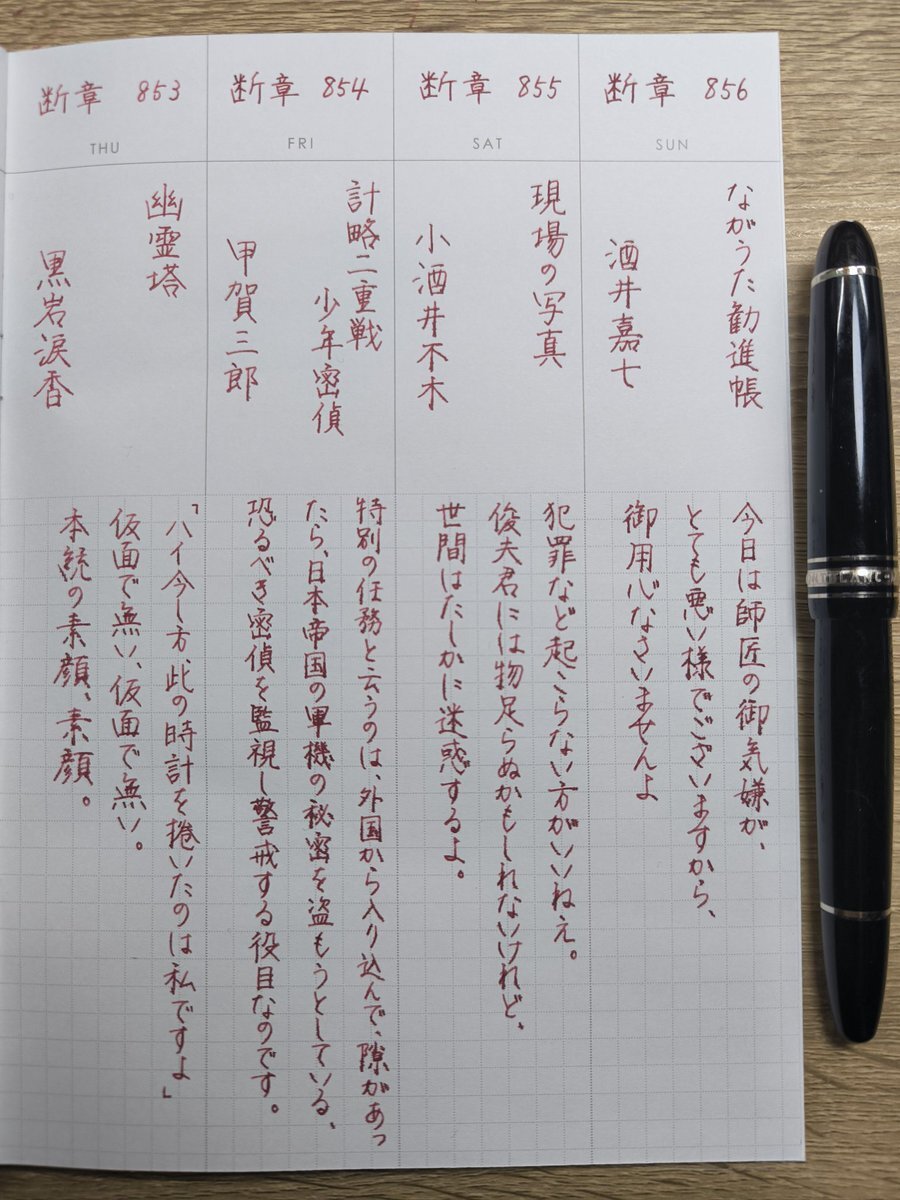 断章 853
THU
幽霊塔
黒岩涙香
「ハイ今し方、此の時計を捲いたのは私ですよ」
仮面で無い、仮面で無い。
本統の素顔、素顔。
断章 854
FRI
計略二重戦
少年密偵
甲賀三郎
特別の任務と云うのは、外国から入り込んで、隙があっ
たら、日本帝国の軍機の秘密を盗もうとしている、
恐るべき密偵を監視し警戒する役目なのです。
断章 855
SAT
現場の写真
小酒井不木
犯罪など起こらない方がいいねえ。
俊夫君には物足らぬかもしれないけれど、
世間はたしかに迷惑するよ。
断章 856
SUN
ながうた勧進帳
酒井嘉七
今日は師匠の御気嫌が、
とても悪い様でございますから、
御用心なさいませんよ